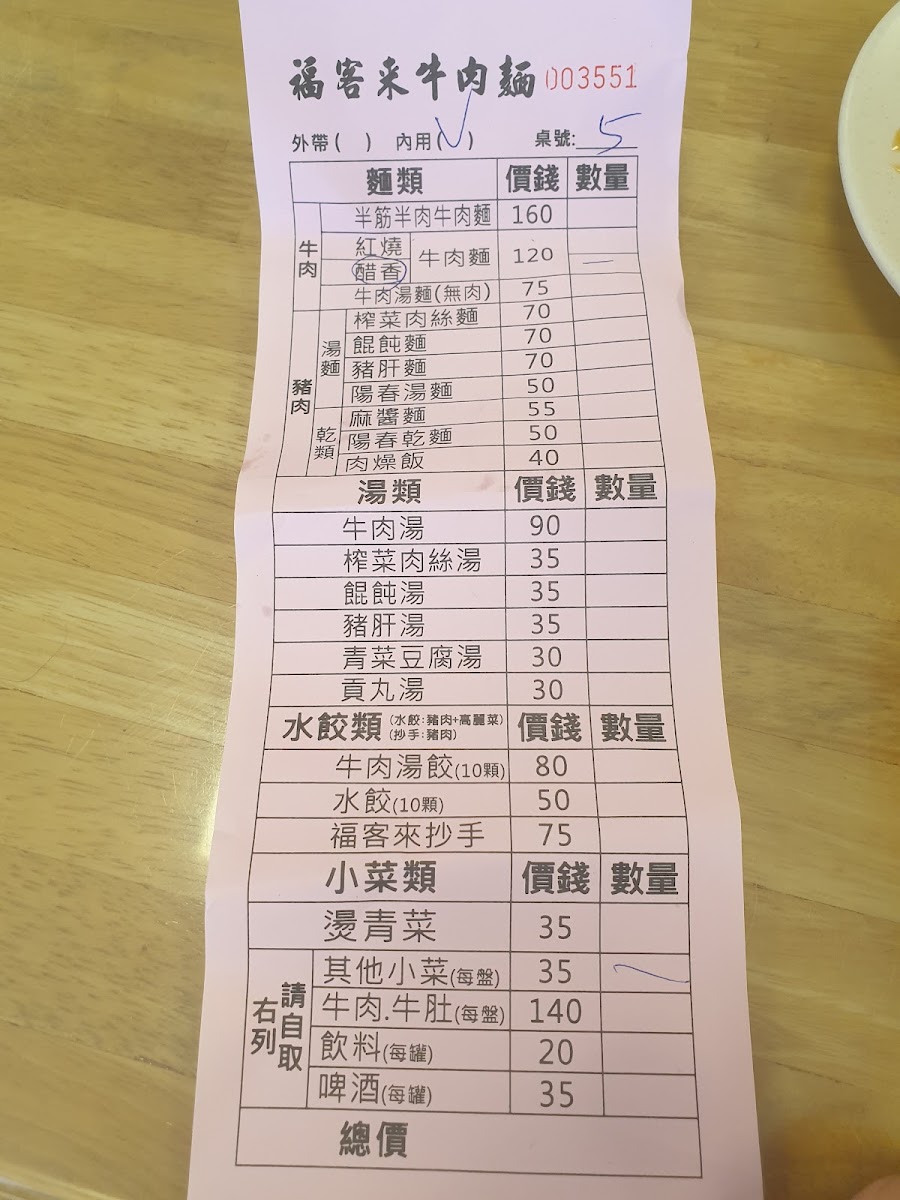 福客来牛肉麵 003551
外帶( ) 內用(✓) 桌號: 5
麵類 價錢 數量
牛肉
半筋半肉牛肉麵 160
紅燒
醋香
牛肉麵 120 一
牛肉湯麵(無肉) 75
豬肉
湯麵
榨菜肉絲麵 70
餛飩麵 70
豬肝麵 70
陽春湯麵 50
乾類
麻醬麵 55
陽春乾麵 50
肉燥飯 40
湯類 價錢 數量
牛肉湯 90
榨菜肉絲湯 35
餛飩湯 35
豬肝湯 35
青菜豆腐湯 30
貢丸湯 30
水餃類 (水餃:豬肉+高麗菜) 價錢 數量
(抄手:豬肉)
牛肉湯餃(10顆) 80
水餃(10顆) 50
福客來抄手 75
小菜類 價錢 數量
燙青菜 35
請自取
右列
其他小菜(每盤) 35 一
牛肉.牛肚(每盤) 140
飲料(每罐) 20
啤酒(每罐) 35
總價